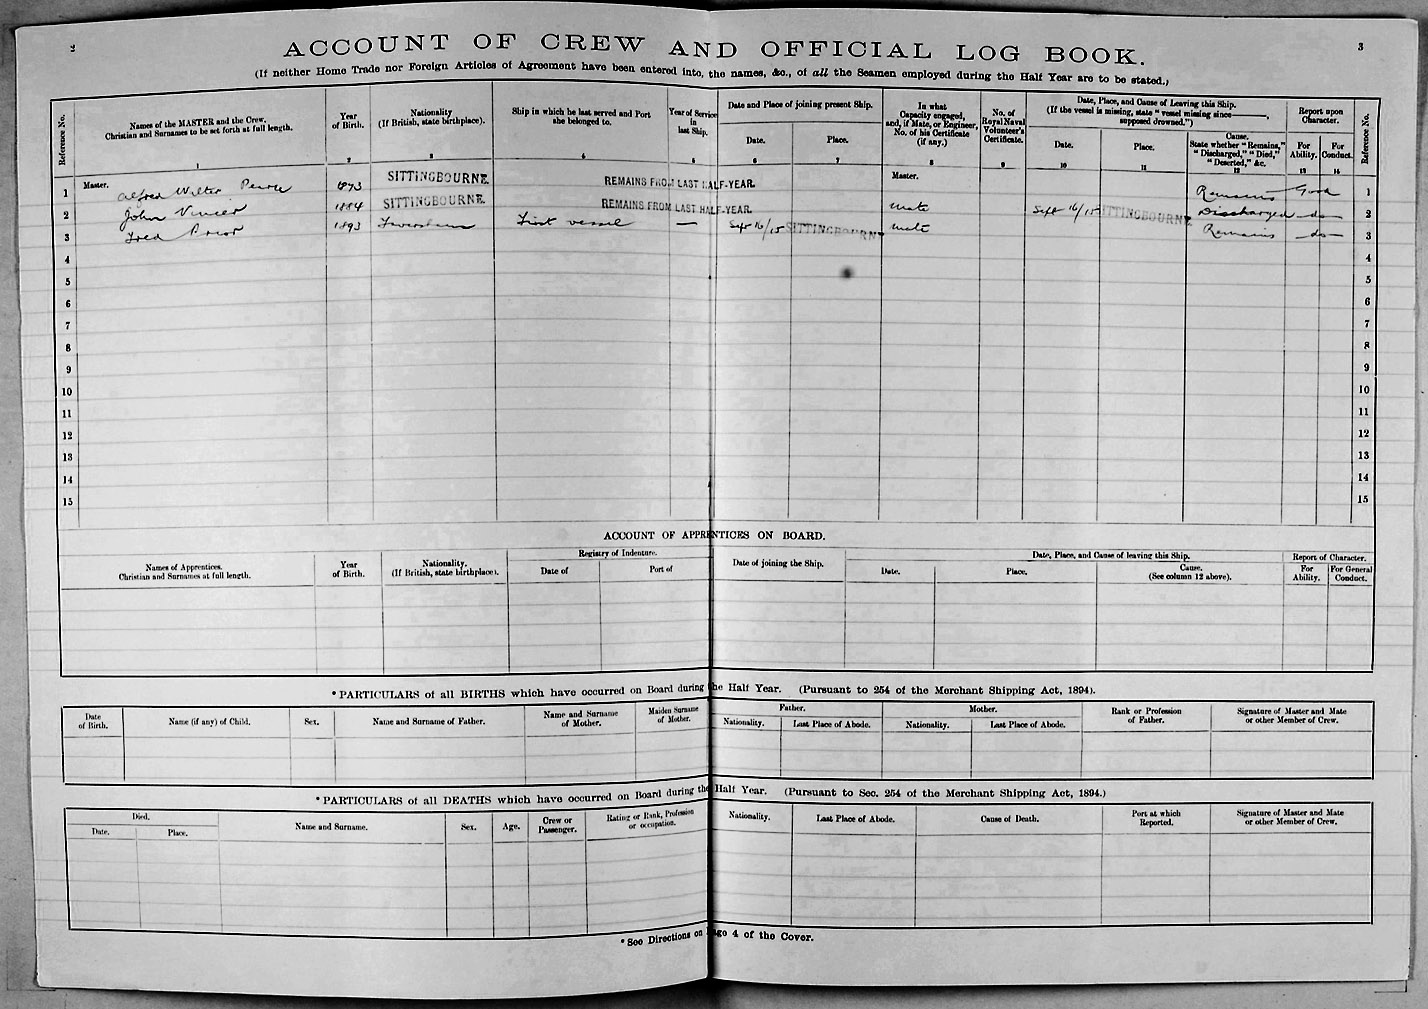 2
3
ACCOUNT OF CREW AND OFFICIAL LOG BOOK.
(If neither Home Trade nor Foreign Articles of Agreement have been entered into, the names, &c., of all the Seamen employed during the Half Year are to be stated.)
Reference No.
Names of the MASTER and the Crew,
Christian and Surnames to be set forth at full length.
1
Year
of Birth.
2
Nationality
(If British, state birthplace).
3
Ship in which he last served and Port
she belonged to.
4
Year of Service
in
last Ship.
5
Date and Place of joining present Ship.
Date.
6
Place.
7
In what
Capacity engaged,
and, if Mate, or Engineer,
No. of his Certificate
(if any.)
8
No. of
Royal Naval
Volunteer's
Certificate.
9
Date, Place, and Cause of Leaving this Ship.
(If the vessel is missing, state "vessel missing since———,
supposed drowned.")
Date.
10
Place.
11
Cause.
State whether "Remains,"
"Discharged," "Died,"
"Deserted," &c.
12
Report upon
Character.
For
Ability.
13
For
Conduct.
14
Reference No.
1 Master. Alfred Walter 1873 SITTINGBOURNE. REMAINS FROM LAST HALF-YEAR. Master. Remains Good 1
2 John 1884 SITTINGBOURNE. REMAINS FROM LAST HALF-YEAR. mate Sept 16/15 SITTINGBOURNE Discharged —do— 2
3 Fred Prior 1893 Faversham First vessel — Sept 16/15 SITTINGBOURNE mate Remains —do— 3
4 4
5 5
6 6
7 7
8 8
9 9
10 10
11 11
12 12
13 13
14 14
15 15
ACCOUNT OF APPRENTICES ON BOARD.
Names of Apprentices.
Christian and Surnames at full length.
Year
of Birth.
Nationality.
(If British, state birthplace).
Registry of Indenture.
Date of
Port of
Date of joining the Ship.
Date, Place, and Cause of leaving this Ship.
Date.
Place.
Cause.
(See column 12 above).
Report of Character.
For
Ability.
For General
Conduct.
*PARTICULARS of all BIRTHS which have occurred on Board during the Half Year. (Pursuant to 254 of the Merchant Shipping Act, 1894).
Date
of Birth.
Name (if any) of Child.
Sex.
Name and Surname of Father.
Name and Surname
of Mother.
Maiden Surname
of Mother.
Father.
Nationality.
Last Place of Abode.
Mother.
Nationality.
Last Place of Abode.
Rank or Profession
of Father.
Signature of Master and Mate
or other Member of Crew.
*PARTICULARS of all DEATHS which have occurred on Board during the Half Year. (Pursuant to Sec. 254 of the Merchant Shipping Act, 1894.)
Died.
Date.
Place.
Name and Surname.
Sex.
Age.
Crew or
Passenger.
Rating or Rank, Profession
or occupation.
Nationality.
Last Place of Abode.
Cause of Death.
Port at which
Reported.
Signature of Master and Mate
or other Member of Crew.
*See Directions on Page 4 of the Cover.